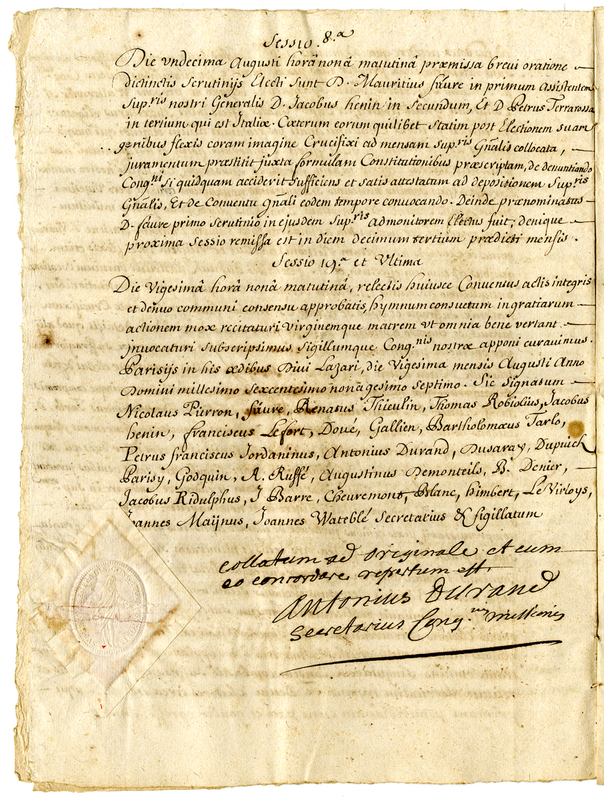 Sessio 8.a
Die vndecima Augusti horâ nonâ matutinâ præmissa brevi oratione
distinctis scrutinijs Electi sunt D. Mauritius faure in primum assistentem
Sup.ris nostri Generalis D. Jacobus henin in Secundum, Et D. Petrus Terrarossa
in tertium qui est Italiæ. Cæterum eorum quilibet statim post Electionem suam
genibus flexis coram imagine Crucifixi ad mensam Sup.ris Gñalis collocata,
juramentum præstitit juxta formulam Constitutionibus præscriptam, de denuntiando
Cong.ni si quidquam acciderit sufficiens et satis attestatum ad depositionem Sup.ris
Gñalis, Et de Conventu gñali eodem tempore convocando. Deinde prænominatus
D. faure primo scrutinio in ejusdem Sup.ris admonitorem Electus fuit; denique
proxima sessio remissa est in diem decimum tertium prædicti mensis.
Sessio 19.a et Ultima
Die Vigesimâ horâ nonâ matutinâ, relectis huiusce Conventus actis integris
et denuo communi consensu approbatis, hymnum consuetum in gratiarum
actionem mox recitaturi virginemque matrem vt omnia bene vertant
invocaturi subscripsimus, sigillumque Cong.nis nostræ apponi curavimus.
Parisijs in his ædibus Divi Lazari, die Vigesima mensis Augusti Anno
Domini millesimo sexcentesimo nonagesimo septimo. Sic signatum
Nicolaus Pierron, faure, Renatus Thieulin, Thomas Robiolius, Jacobus
henin, franciscus Lefort, Doué, Gallien, Bartholomæus Tarlo,
Petrus franciscus Jordaninus, Antonius Durand, Dusaray, Dupuich
Parisy, Godquin, A. Ruffé, Augustinus Demonteils, B. Denier,
Jacobus Ridulphus, J Barre, Cheuremont, Blanc, himbert, Le Virloys,
Joannes Maijnus, Joannes Wateblé Secretarius & sigillatum
Collatum ad originale et cum
eo concordare repertum est.
Antonius Durand
Secretarius Cong.nis missionis